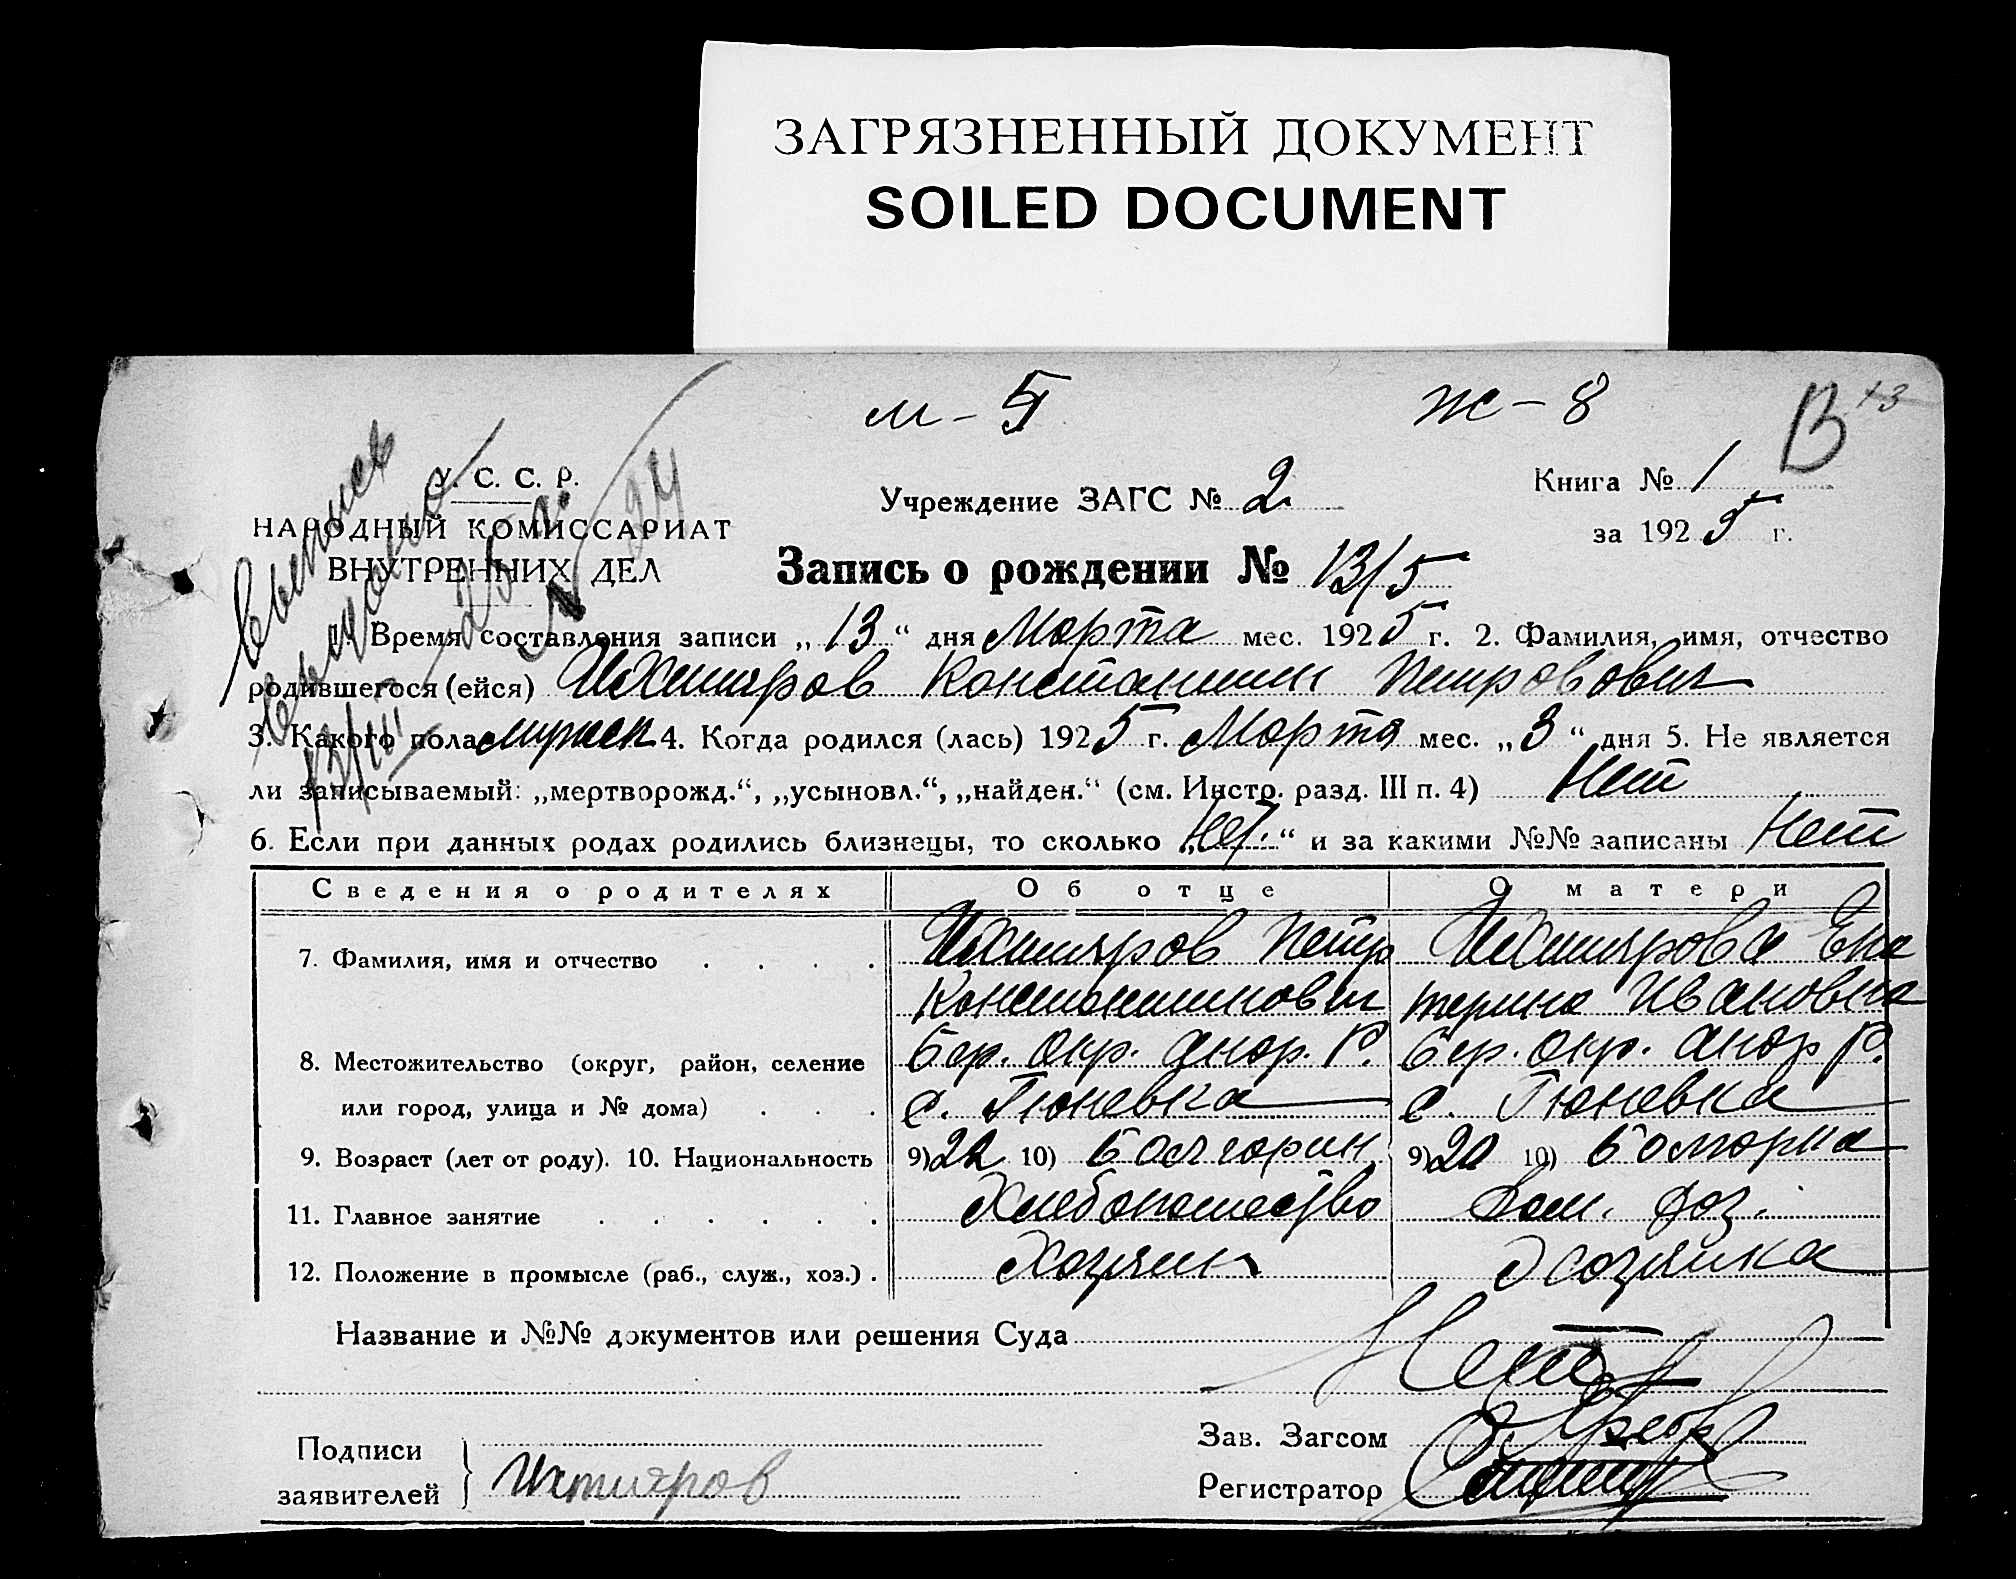 ЗАГРЯЗНЕННЫЙ ДОКУМЕНТ
SOILED DOCUMENT
м - 5 ж - 8 13
У. С. С. Р.
НАРОДНЫЙ КОМИССАРИАТ
ВНУТРЕННИХ ДЕЛ
Выпись
выдана
Учреждение ЗАГС № 2
Книга № 1
за 1925 г.
Запись о рождении № 13/5
Время составления записи „13“ дня Марта мес. 1925 г. 2. Фамилия, имя, отчество
родившегося (ейся) Ихтияров Константин Петровович
3. Какого пола мужск 4. Когда родился (лась) 1925 г. Марта мес. „3“ дня 5. Не является
ли записываемый: „мертворожд.“, „усыновл.“, „найден.“ (см. Инстр. разд. III п. 4) Нет
6. Если при данных родах родились близнецы, то сколько „Нет“ и за какими №№ записаны Нет
Сведения о родителях Об отце О матери
7. Фамилия, имя и отчество . . . . Ихтияров Петр Ихтиярова Ека
Константинович терина Ивановна
8. Местожительство (округ, район, селение Бер. Окр. Андр. Р. Бер. Окр. Андр Р.
или город, улица и № дома) . . . с. Гюневка с. Гюневка
9. Возраст (лет от роду). 10. Национальность 9) 22 10) Болгарин 9) 20 10) Болгарка
11. Главное занятие . . . . . . Хлебопашество Дом. хоз.
12. Положение в промысле (раб., служ., хоз.) . Хозяин Хозяйка
Название и №№ документов или решения Суда Нет
Подписи
заявителей Ихтияров
Зав. Загсом
Регистратор